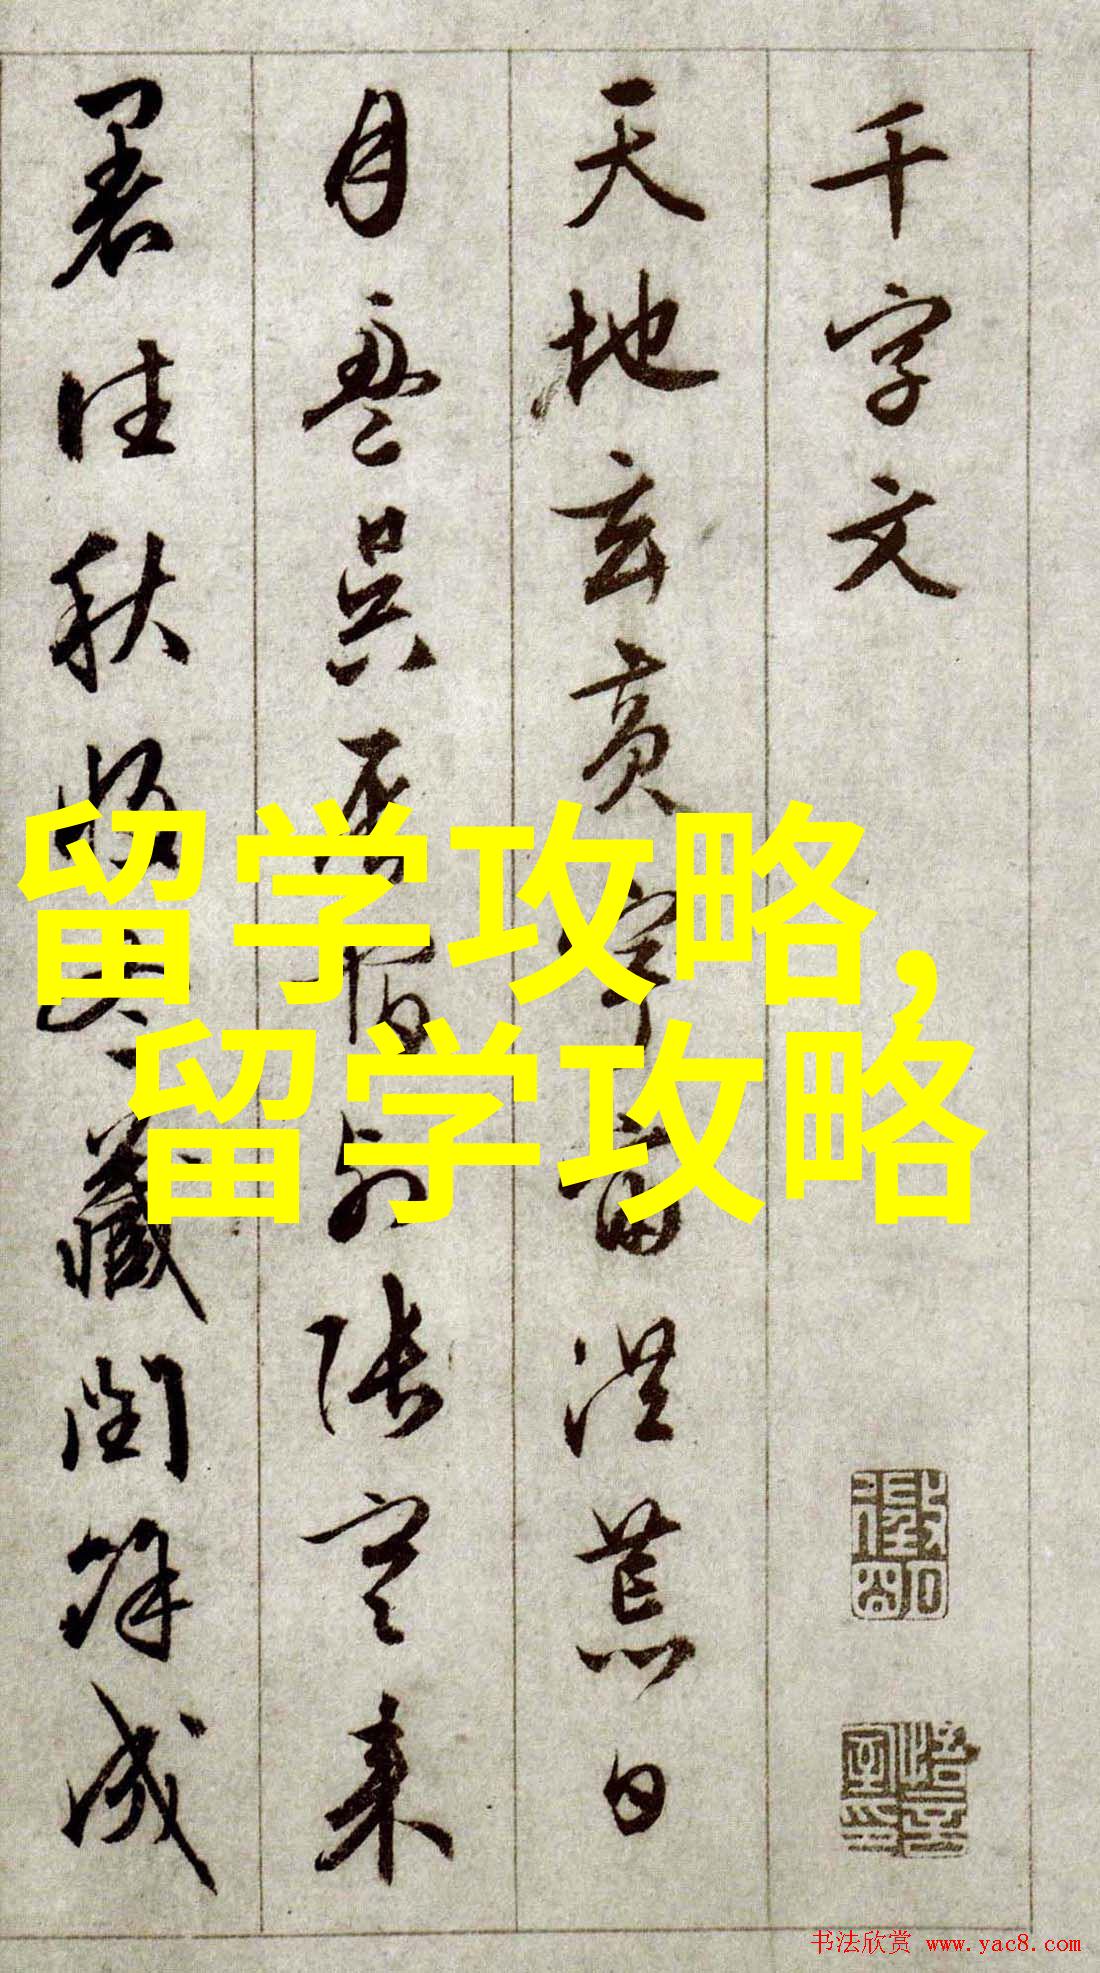 千字文
天地玄黃宇宙洪荒日
月盈昃辰宿列張寒来
暑往秋收冬藏閏餘成
留学攻略,
留学攻略
书法欣赏 www.yac8.com